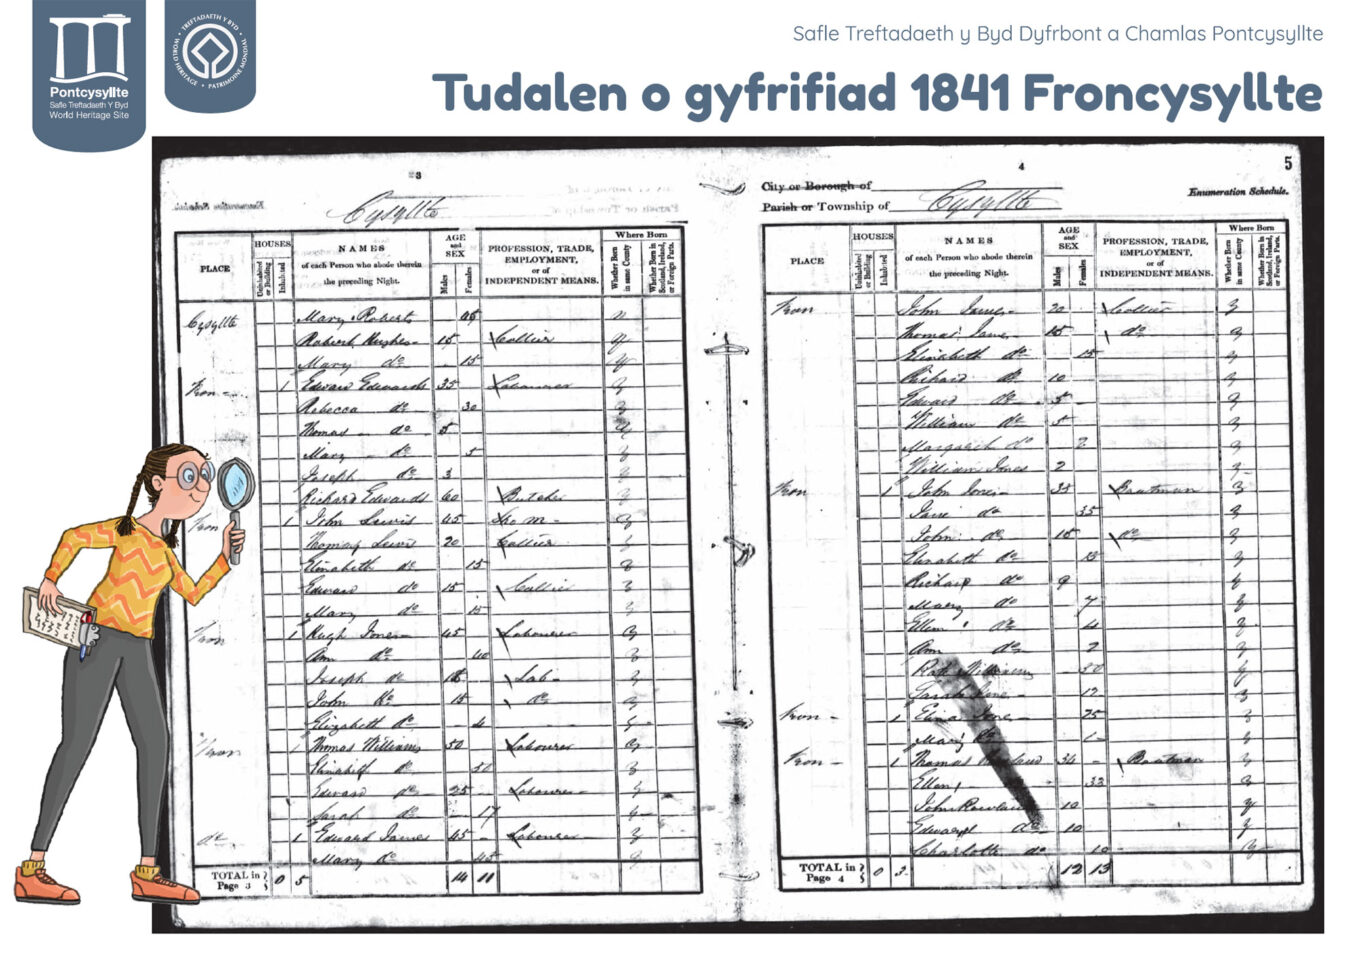 Pontcysyllte
Safle Treftadaeth Y Byd
World Heritage Site
TREFTADAETH Y BYD • WORLD HERITAGE • PATRIMOINE MONDIAL
Safle Treftadaeth y Byd Dyfrbont a Chamlas Pontcysyllte
Tudalen o gyfrifiad 1841 Froncysyllte
3
Cysyllte
PLACE
HOUSES
Uninhabited or Building
Inhabited
NAMES
of each Person who abode therein
the preceding Night.
AGE and SEX
Males
Females
PROFESSION, TRADE,
EMPLOYMENT,
or of
INDEPENDENT MEANS.
Where Born
Whether Born in same County
Whether Born in Scotland, Ireland, or Foreign Parts.
Cysyllte Mary Roberts
Robert Hughes 15 Collier
Mary do 15
Fron 1 Edward Edwards 35 Labourer
Rebecca do 30
Thomas do 5
Mary do 5
Joseph do 3
Richard Edwards 60 Butcher
Fron 1 John Lewis 45
Thomas Lewis 20 Collier
Elizabeth do 15
Edward do 15 Collier
Mary do 15
Fron 1 Hugh Jones 45 Labourer
Ann do 40
Joseph do Lab
John do 15 do
Elizabeth do 4
Fron 1 Thomas Williams 50 Labourer
Elizabeth do 50
Edward do 25 Labourer
Sarah do 17
do 1 Edward James 45 Labourer
Mary do 45
TOTAL in Page 3 0 5 14 11
4
5
City or Borough of
Enumeration Schedule.
Parish or Township of Cysyllte
PLACE
HOUSES
Uninhabited or Building
Inhabited
NAMES
of each Person who abode therein
the preceding Night.
AGE and SEX
Males
Females
PROFESSION, TRADE,
EMPLOYMENT,
or of
INDEPENDENT MEANS.
Where Born
Whether Born in same County
Whether Born in Scotland, Ireland, or Foreign Parts.
Fron John 20 Collier
Thomas 15 do
Elizabeth do 15
Richard do 10
Edward do 5
William do 5
Margaret do 2
William Jones 2
Fron 1 John Jones 35 Boatman
Jane do 35
John do 15 do
Elizabeth do 13
Richard do 9
Mary do 7
Ellen do 4
Ann do 2
Williams 30
Sarah Jones 12
Fron 1 Jones 75
Mary do 1
Fron 1 Thomas Rowland 34 Boatman
Ellen 33
John Rowland 10
Edward do 10
Charlotte do 10
TOTAL in Page 4 0 3 12 13